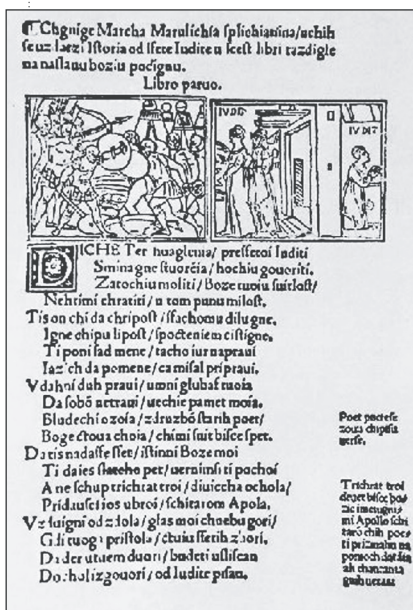 ¶ Chgnige Marcha Marulichia splichianina/uchih
se uzdarzi Istoria od ssete Iudite u scest libri razdigle
na na slauu boziu počignu.
Libro paruo.
IVDIT
IVDIT
DICHE Ter huaglenia/ presfetoi Iuditi
Smina gne stuoréia/ hochiu gouoriti.
Zatochiu moliti/ Boze tuoiu suitlost/
Nehtimi chratiti/ u tom punu milost.
Tison chi da chripost/ ssachomu dilu gne.
I gne chipu lipost/ s počteniem čistigne.
Ti poni sad mene/ tacho iur napraui
Iazich da pomene/ ca misal pripraui.
Vdahni duh praui/ u mni glubaf tuoia
Da sobō ne traui/ uechie pamet moia.
Bludechi ozoia/ z druzbō starih poet/
Boge čtoua choia/ chimi suit bisce spet.
Da tis nadasse sset/ istinni Boze moi
Ti daies slatcho pet/ uernim si ti pochoi
A ne schup trichrat troi/ diuiccha ochola/
Pridausci ios ubroi/ s chitarom Apola.
Vzduigni od zdola/ glas moi chnebu gori/
Gdi tuoga pristola/ chuis sferih zbori.
Da der utuem duori/ budeti uslisan
Do chol izgouori/ od Iudite pisan.
Poet pocetie
zoua chipisū
uerse.
Trichrat troi
deuet bisce bo/
zic imenugnu/
mi Apollo schi
tarō chih poe/
ti prizmahu na
pomoch da sa